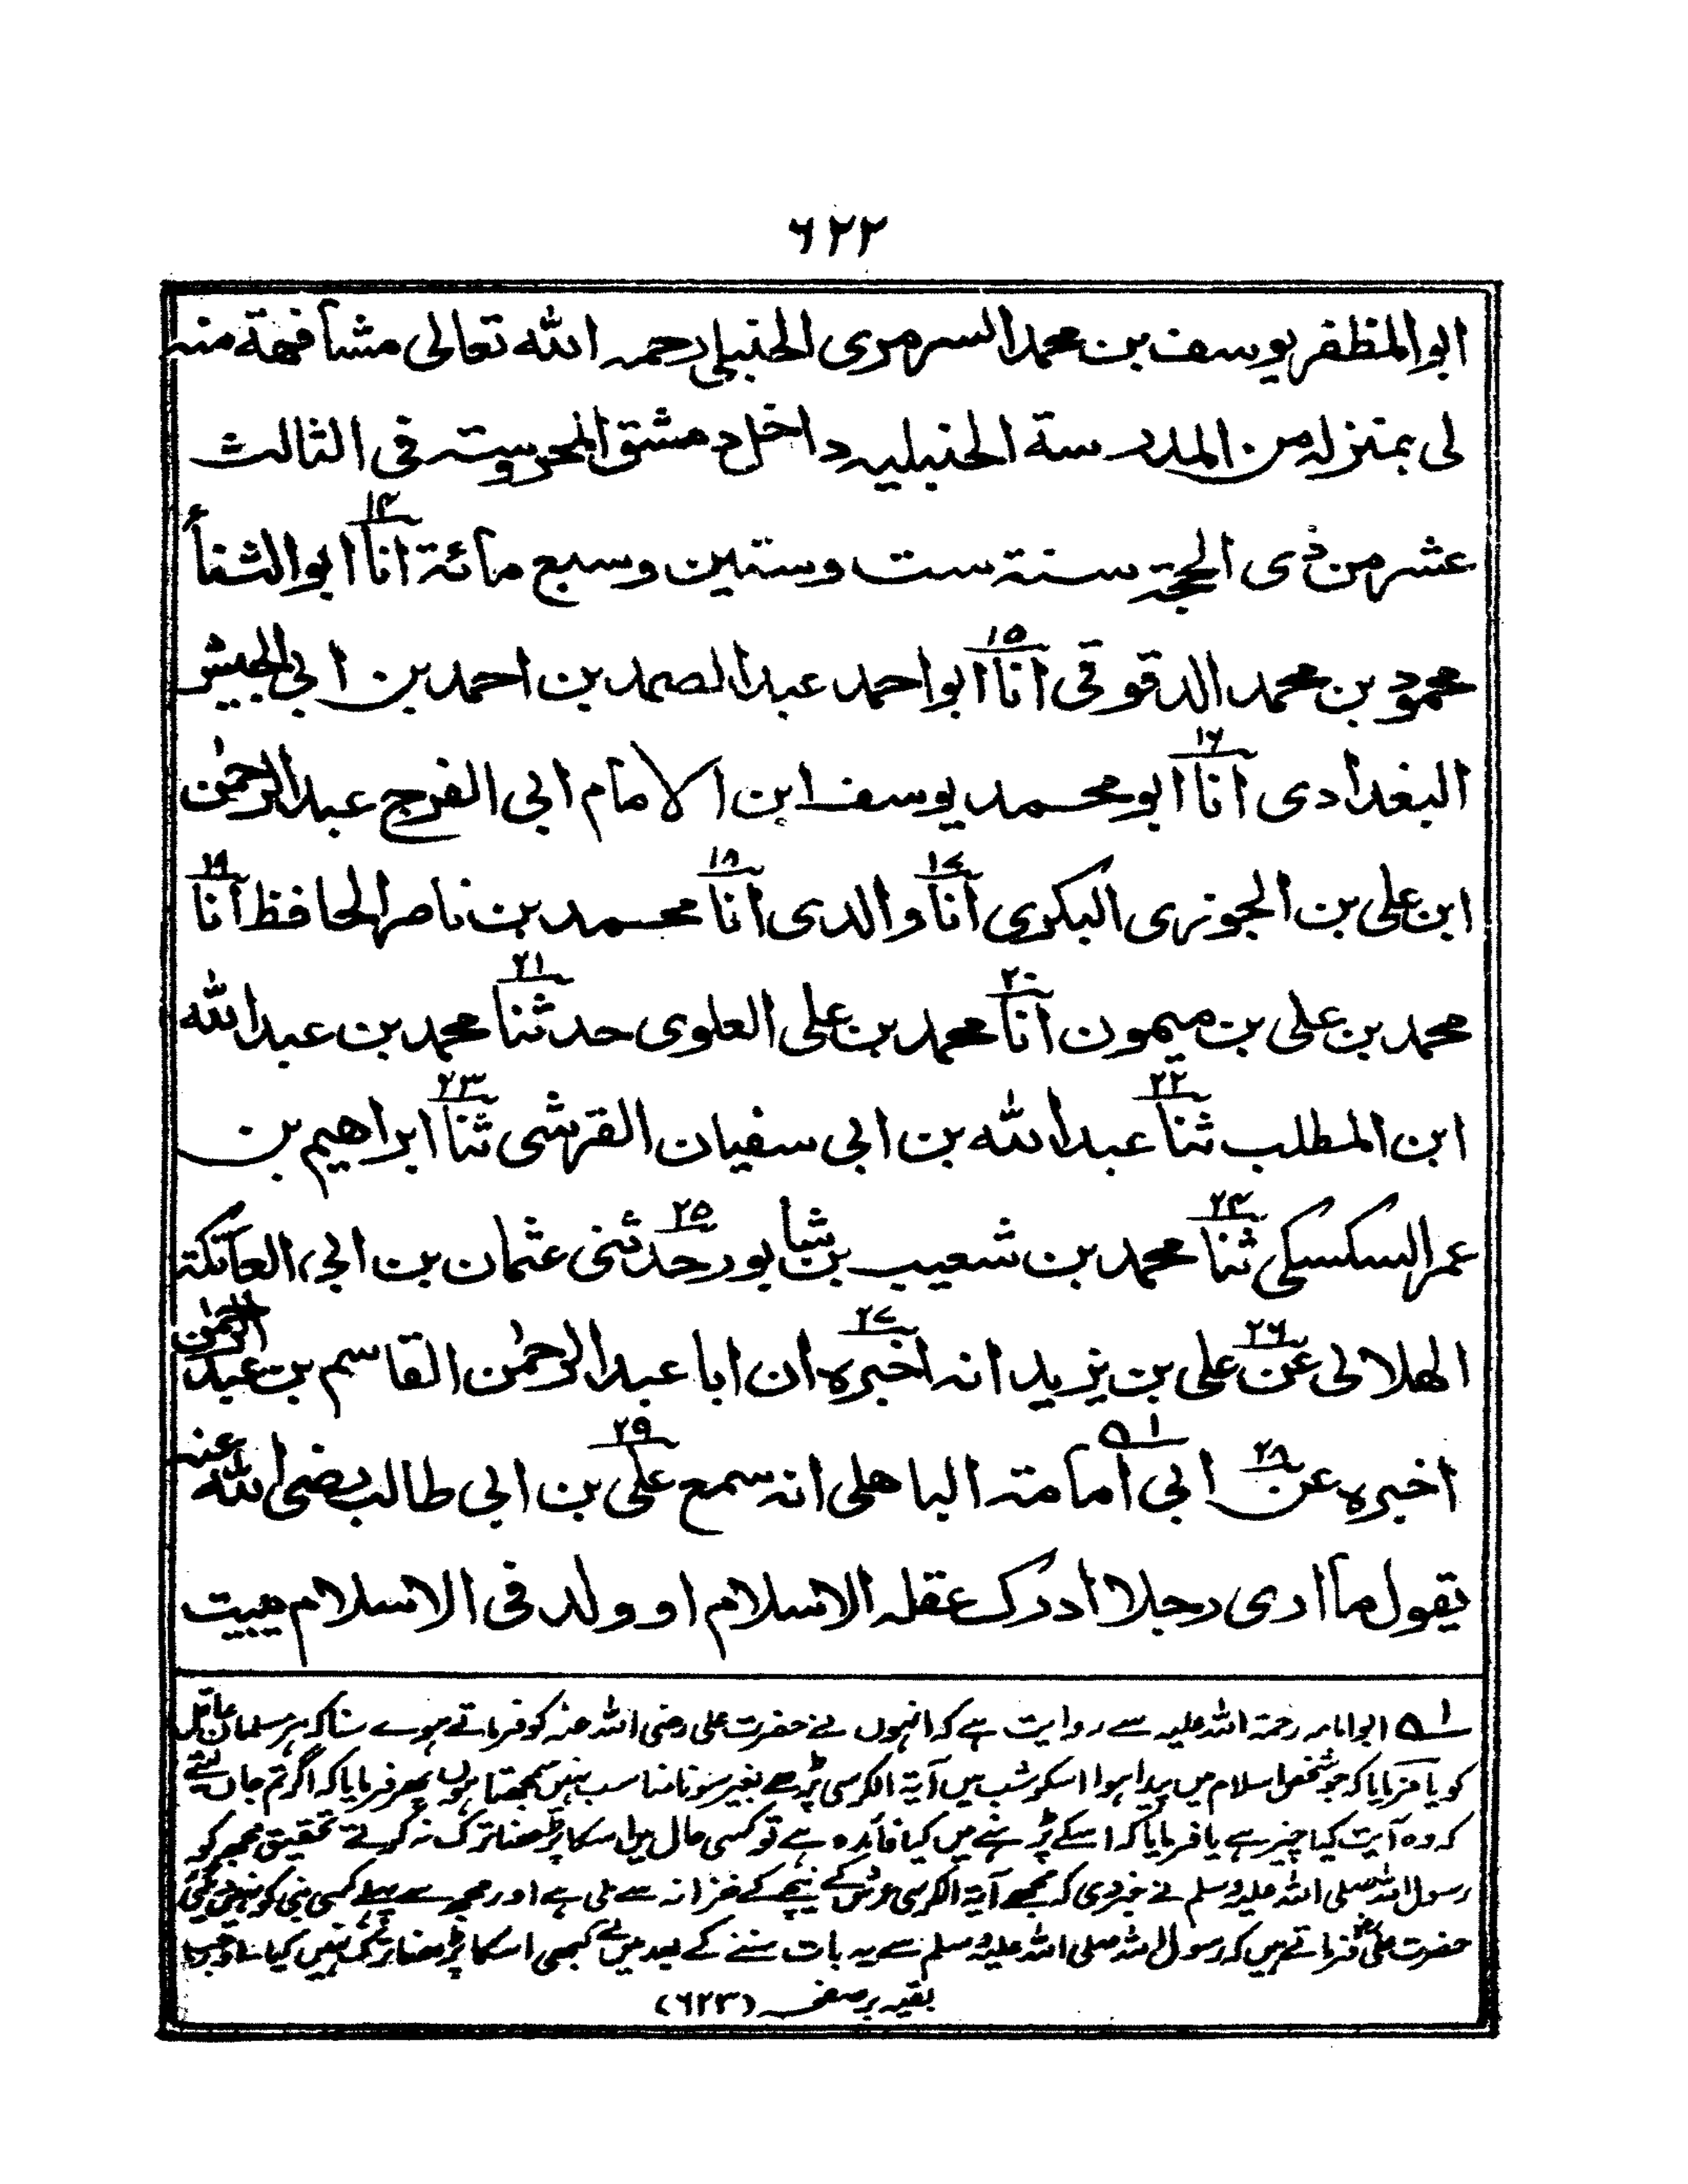 ٦٢٢
ابو المظفر يوسف بن محمد السرمرى الحنبلى رحمه الله تعالى مشافهة منه
لى بمنزله من المدرسة الحنبليه داخل دمشق المحروسته فى الثالث
عشر من ذى الحجة سنة ست وستين وسبع مائة انا ۱۴ ابو الثناء
محمود بن محمد الدقوقى انا ۱۵ ابو احمد عبد الصمد بن احمد بن ابى الجيش
البغدادى انا ۱۶ ابو محمد يوسف ابن الامام ابى الفرج عبد الرحمٰن
ابن على بن الجوزى البكرى انا ۱۷ والدى انا ۱۸ محمد بن ناصر الحافظ انا ۱۹
محمد بن على بن ميمون انا ۲۰ محمد بن على العلوى حدثنا ۲۱ محمد بن عبد الله
ابن المطلب ثنا ۲۲ عبد الله بن ابى سفيان القرشى ثنا ۲۳ ابراهيم بن
عمر السكسكى ثنا ۲۴ محمد بن شعيب بن شابور حدثنى ۲۵ عثمان بن ابى العاتكة
الهلالى عن ۲۶ على بن يزيد انه اخبره ۲۷ ان ابا عبد الرحمٰن القاسم بن عبد الرحمٰن
اخبره عن ۲۸ ابى امامة ۱ الباهلى انه سمع على ۲۹ بن ابى طالب رضى الله عنه
يقول ما ارى رجلا ادرك عقله الاسلام او ولد فى الاسلام يبيت
۱ ابوامامہ رحمۃ اللہ علیہ سے روایت ہے کہ انہوں نے حضرت علی رضی اللہ عنہ کو فرماتے ہوے سنا کہ ہر مسلمان عاقل
کو یا فرمایا کہ جو شخص اسلام میں پیدا ہوا اسکو شب میں آیۃ الکرسی پڑھے بغیر سونا مناسب نہیں سمجھتا ہوں پھر فرمایا کہ اگر تم جان لیتے
کہ وہ آیت کیا چیز ہے یا فرمایا کہ اسکے پڑہنے میں کیا فائدہ ہے تو کسی حال میں اسکا پڑھنا ترک نہ کرتے تحقیق مجھ کو
رسول اللہ صلی اللہ علیہ وسلم نے خبر دی کہ مجھے آیۃ الکرسی عرش کے نیچے کے خزانہ سے ملی ہے اور مجھ سے پہلے کسی نبی کو نہیں دی گئی
حضرت علیؓ فرماتے ہیں کہ رسول اللہ صلی اللہ علیہ وسلم سے یہ بات سننے کے بعد میں نے کبھی اسکا پڑھنا ترک نہیں کیا
بقیہ بر صفحہ (٦٢٣)